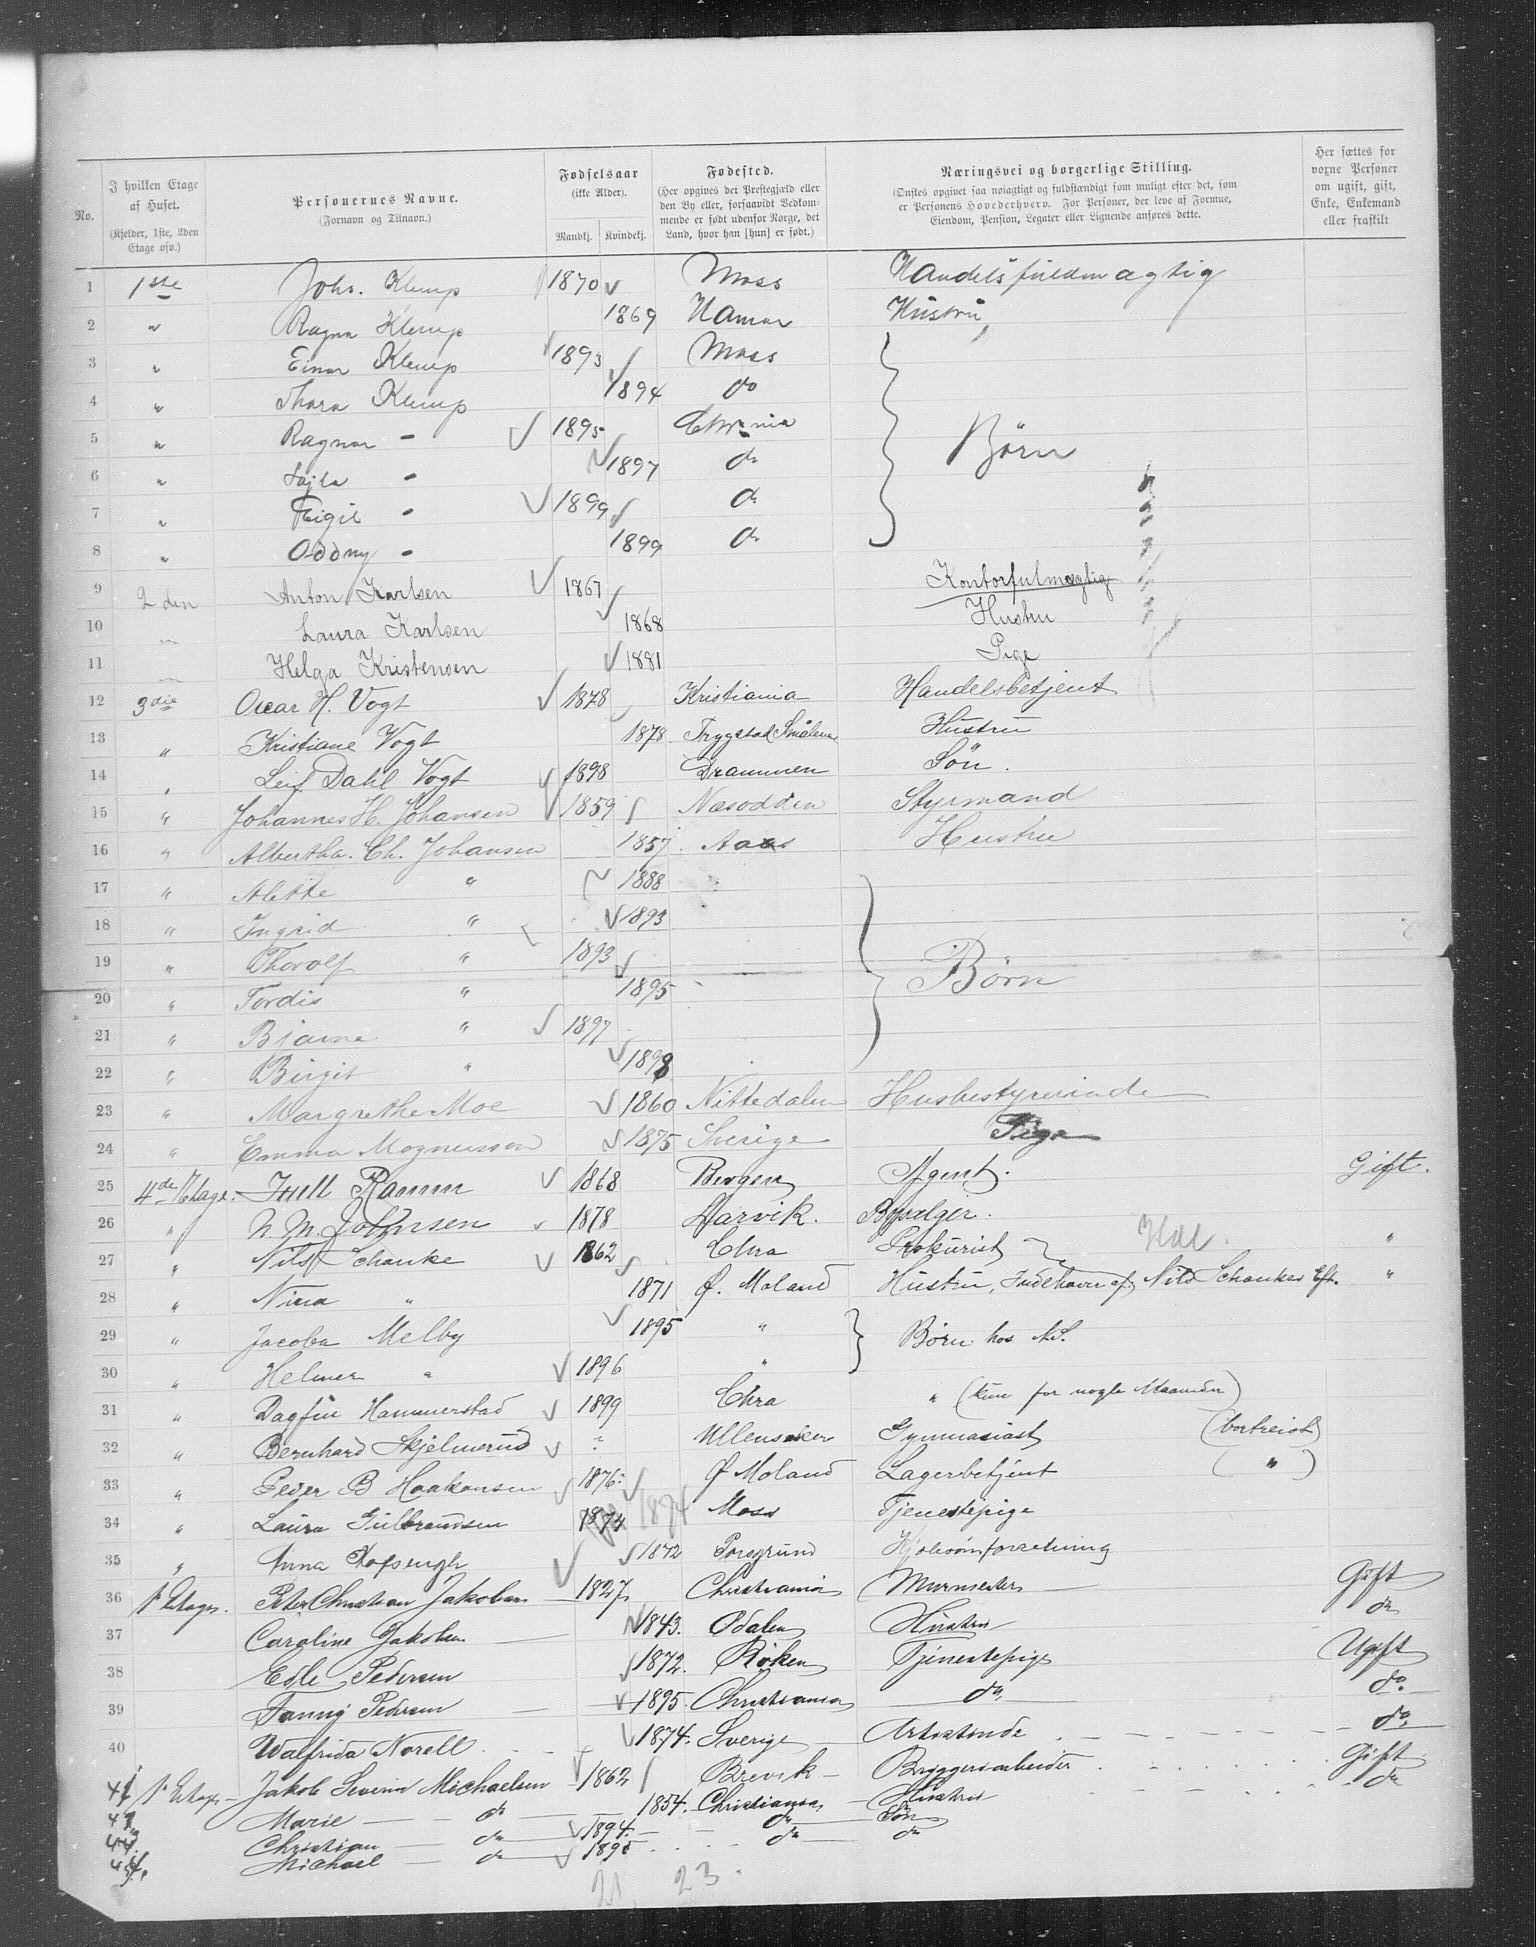 No. | I hvilken Etage af Huset. (Kjelder, 1ste, 2den Etage osv.) | Personernes Navne. (Fornavn og Tilnavn.) | Fødselsaar (ikke Alder). Mandkj. Kvindekj. | Fødested. (Her opgives det Prestegjæld eller den By eller, forsaavidt Vedkommende er født udenfor Norge, det Land, hvor han [hun] er født.) | Næringsvei og borgerlige Stilling. (Ønskes opgivet saa nøiagtigt og fuldstændigt som muligt efter det, som er Personens Hovederhverv. For Personer, der leve af Formue, Eiendom, Pension, Legater eller Lignende anføres dette. | Her sættes for voxne Personer om ugift, gift, Enke, Enkemand eller fraskilt
1 1ste Johs. Klemp 1870 Moss Handelsfuldmagtig
2 " Ragna Klemp 1869 Hamar Hustru
3 " Einar Klemp 1893 Moss
4 " Thora Klemp 1894 do
5 " Ragnar - 1895 Chrania Børn
6 " Lajla - 1897 do
7 " Eigil - 1899 do
8 " Oddny - 1899 do
9 2den Anton Karlsen 1867 Kontorfulmægtig
10 " Laura Karlsen 1868 Hustru
11 " Helga Kristensen 1881 Pige
12 3die Oscar H. Vogt 1878 Kristiania Handelsbetjent
13 " Kristiane Vogt 1878 Trygstad Smålene Hustru
14 " Leif Dahl Vogt 1898 Drammen Sön.
15 " Johannes H. Johansen 1859 Næsodden Styrmand
16 " Albertha. Ch. Johansen 1857 Aas Hustru
17 " Alette " 1888
18 " Ingrid " 1893
19 " Thorolf " 1893 Børn
20 " Tordis " 1895
21 " Bjarne " 1897
22 " Birgit " 1898
23 " Margrethe Moe 1860 Nittedalen Husbestyrerinde
24 " Emma Magnusson 1875 Sverige Pige
25 4de Etage. Juell Ramm 1868 Bergen Agent. Gift.
26 " N. M. Johnsen 1878 Larvik. Bysælger.
27 " Nils Schanke 1862 Chra Prokurist "
28 " Nina " 1871 Ø. Moland Hustru, Indehaver af Nils Schankes Eft. "
29 " Jacoba Melby 1895 " Børn hos N.S.
30 " Helmer " 1896 "
31 " Dagfin Hammerstad 1899 Chra " (kun for nogle Maaneder)
32 " Bernhard Skjelmerud ? Ullensaker Gymnasiast (bortreist)
33 " Peder B Haakonsen 1876 Ø Moland Lagerbetjent ( " )
34 " Laura Gulbrandsen 1874 1874 Moss Tjenestepige
35 " Anna 1872 Porsgrund
36 1 Etages. Peter Christian Jakobsen 1827 Christiania Murmester Gift
37 Caroline Jakobsen 1843. Odalen Hustru do
38 Edle Pedersen 1872. Røken Tjenestepige Ugift
39 Fanny Pedersen 1895. Christiania do do.
40 Walfrida Norell 1874. Sverige Artistinde do.
41 1 Etages Jakob Severin Michaelsen 1862 Brevik Bryggeriarbeider Gift
Marie do 1854. Christiania Hustru do
Christian do 1894. do Sön
Michael do 1895 do do
21 23.